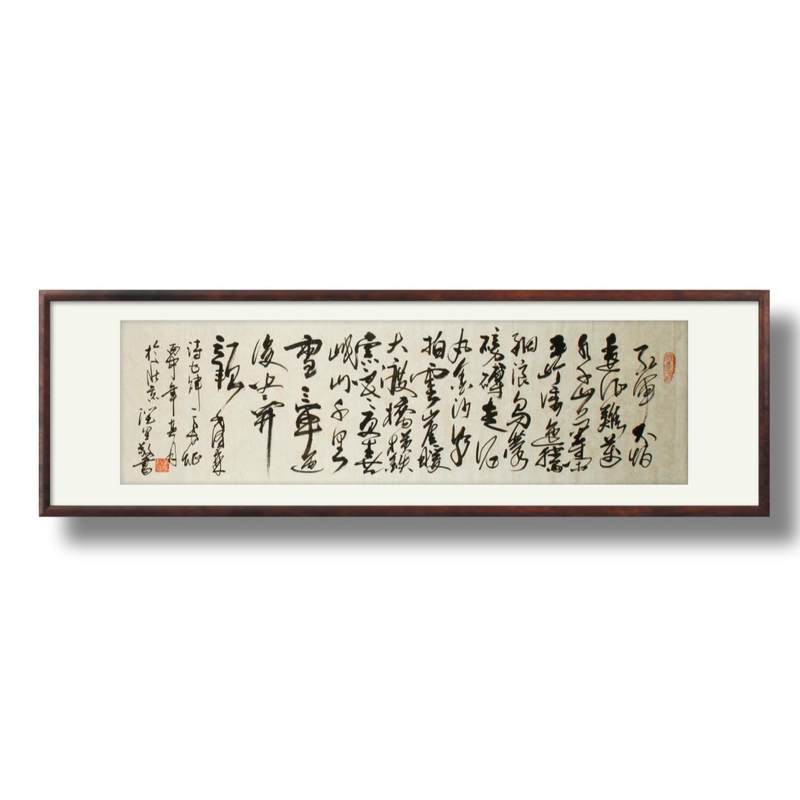 紅軍不怕
遠征難萬
水千山只等閑
五嶺逶迤騰
細浪烏蒙
磅礴走泥
丸金沙水
拍雲崖暖
大渡橋橫鐵
索寒更喜
岷山千里
雪三軍過
後盡開
顏 毛澤東
詩七律長征
年春月
於北京 敬書